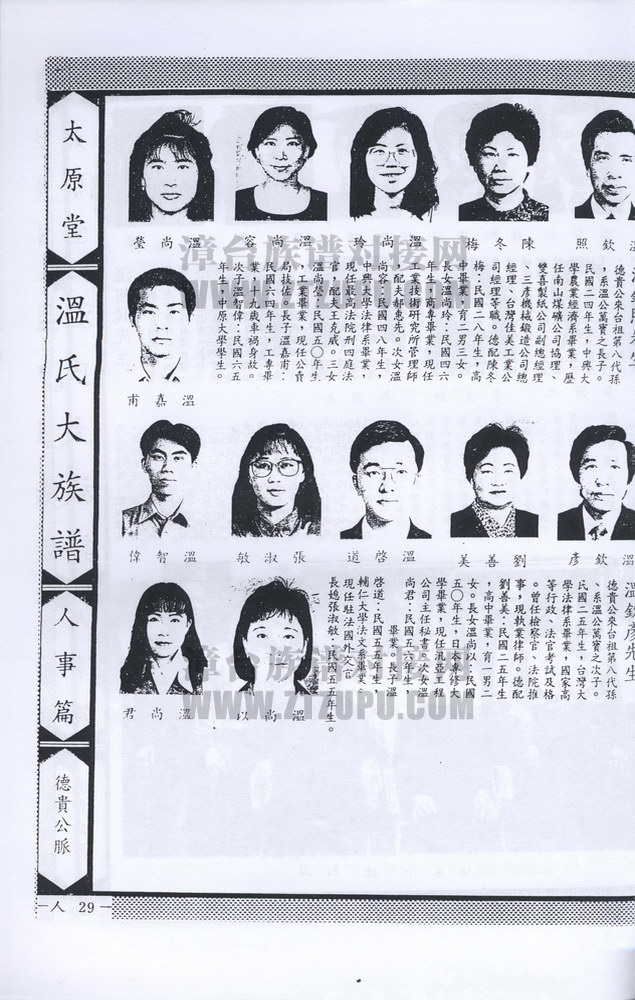 太原堂
溫氏大族譜
人事篇
德貴公脈
人 29
照欽溫
梅冬陳
玲尚溫
容尚溫
瑩尚溫
德貴公來台祖第八代孫
，系溫公萬寶之長子。
民國二四年生，中興大
學農業經濟系畢業，歷
任南山煤礦公司協理、
雙喜製紙公司副總經理
、三彥機械鍛造公司總
經理、台灣佳美工業公
司經理等職。德配陳冬
梅：民國二八年生，高
中畢業，育二男三女。
長女溫尚玲：民國四六
年生，商專畢業，現任
工業技術研究所管理師
，配夫郝惠先。次女溫
尚容：民國四八年生，
中興大學法律系畢業，
現任最高法院刑四庭法
官，配夫王克威。三女
溫尚瑩：民國五〇年生
，工業畢業，現任公賣
局技佐。長子溫嘉甫：
民國六四年生，工專畢
業，十九歲車禍身故。
次子溫智偉：民國六五
年生，中原大學學生。
甫嘉溫
彥欽溫
美善劉
道啓溫
敏淑張
偉智溫
溫欽彥先生
德貴公來台祖第八代孫
、系溫公萬寶之次子。
民國二五年生，台灣大
學法律系畢業，國家高
等行政、法官考試及格
。曾任檢察官、法院推
事，現執業律師。德配
劉善美：民國二五年生
，高中畢業，育一男二
女。長女溫尚以：民國
五〇年生，日本專修大
學畢業，現任汎亞工程
公司主任秘書。次女溫
尚君：民國五六年生，
畢業。長子溫
啓道：民國五五年生，
輔仁大學法文系畢業，
現任駐法國外交官
長媳張淑敏：民國五五年生。
以尚溫
君尚溫
漳台族谱对接网
WWW.ZTZUPU.COM
漳台族谱对接网
WWW.ZTZUPU.COM